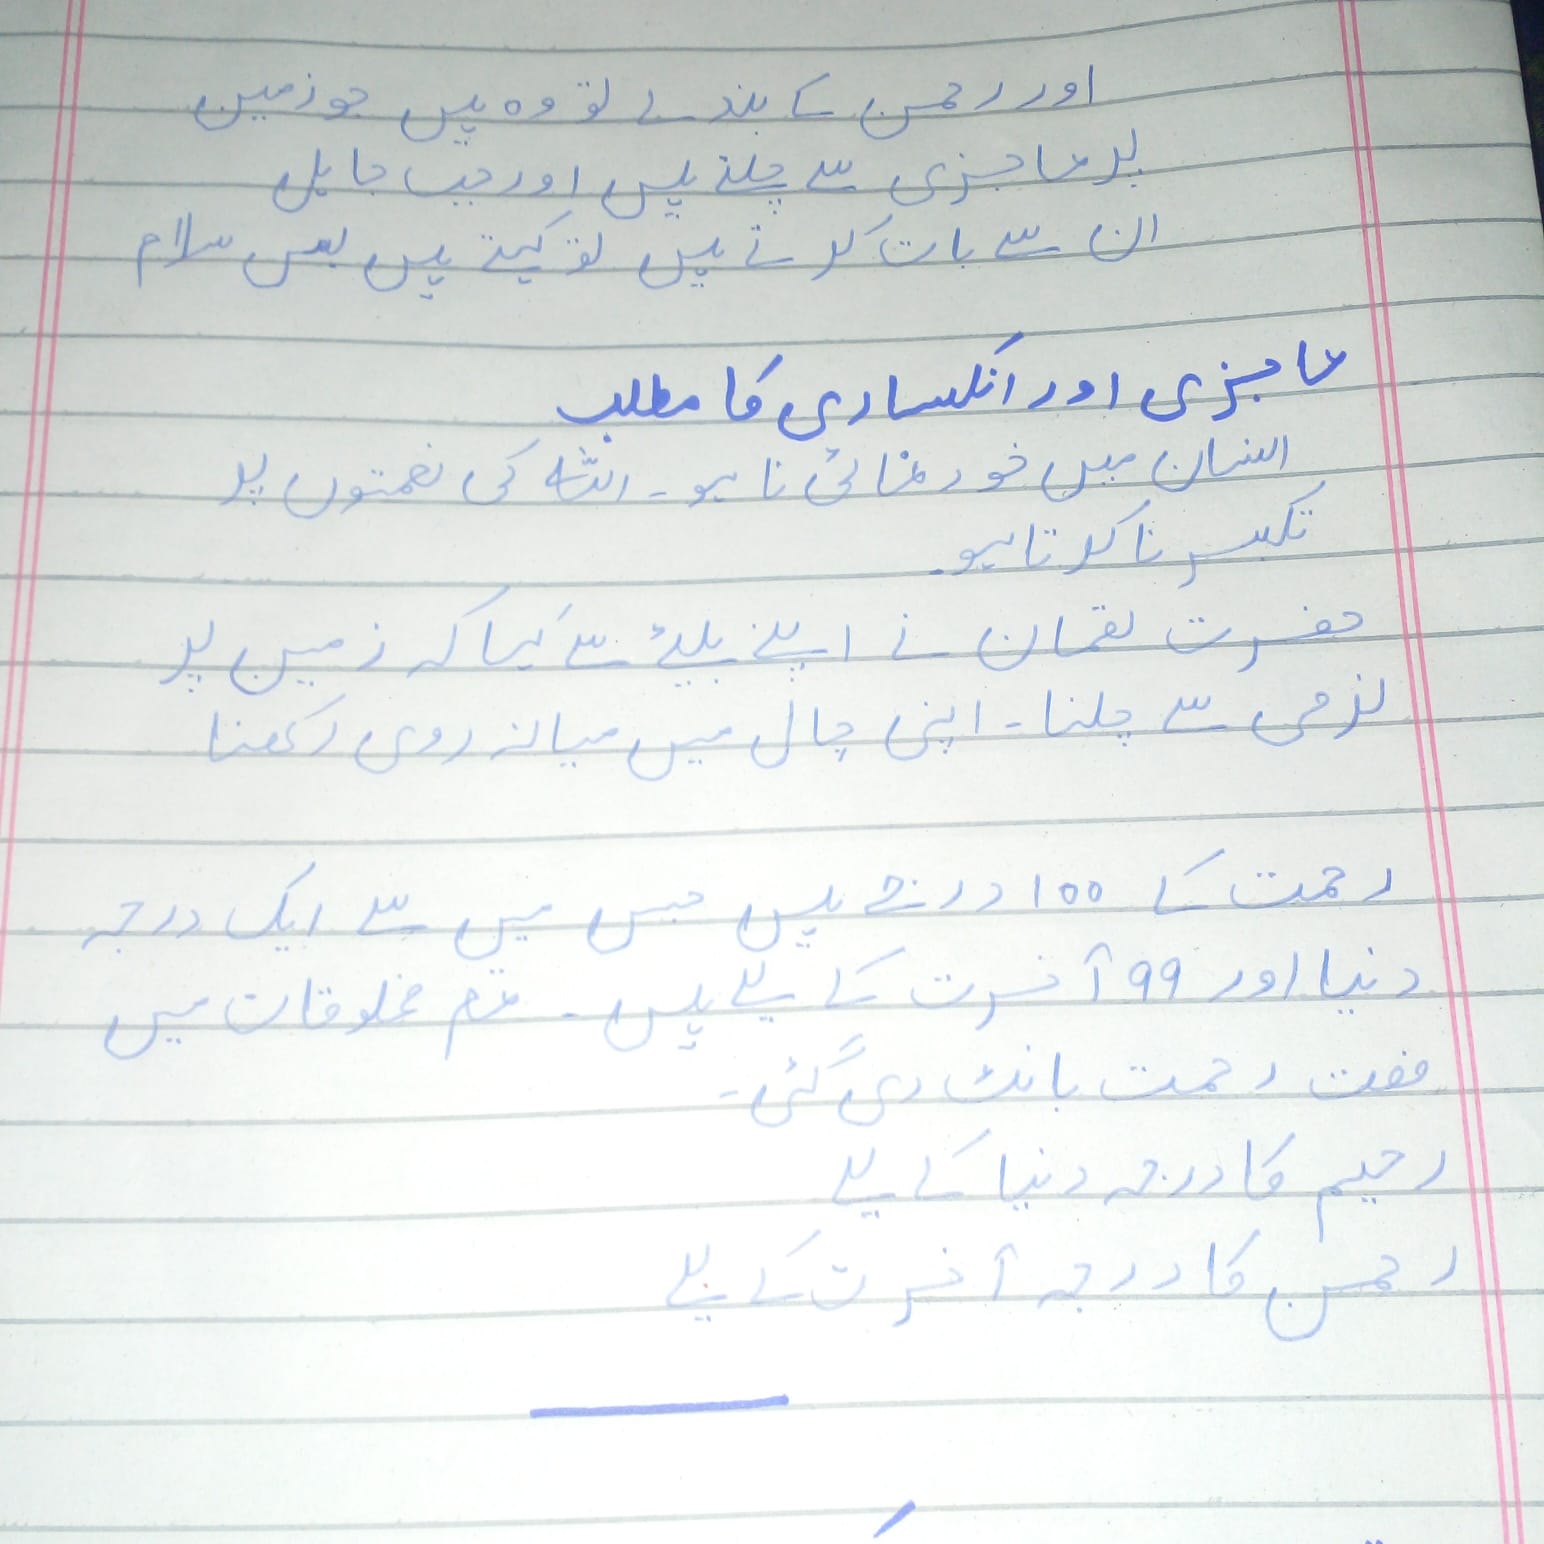 اور رحمن کے بندے تو وہ ہیں جو زمین
پر عاجزی سے چلتے ہیں اور جب جاہل
ان سے بات کرتے ہیں تو کہتے ہیں بس سلام
عاجزی اور انکساری کا مطلب
انسان میں خود نمائی نا ہو۔ اللہ کی نعمتوں پر
تکبر نا کرتا ہو۔
حضرت لقمان نے اپنے بیٹے سے کہا کہ زمین پر
نرمی سے چلنا۔ اپنی چال میں میانہ روی رکھنا
رحمت کے 100 درجے ہیں جس میں سے ایک درجہ
دنیا اور 99 آخرت کے لیے ہیں۔ مخلوقات میں
صفت رحمت بانٹ دی گئی۔
رحیم کا درجہ دنیا کے لیے
رحمن کا درجہ آخرت کے لیے